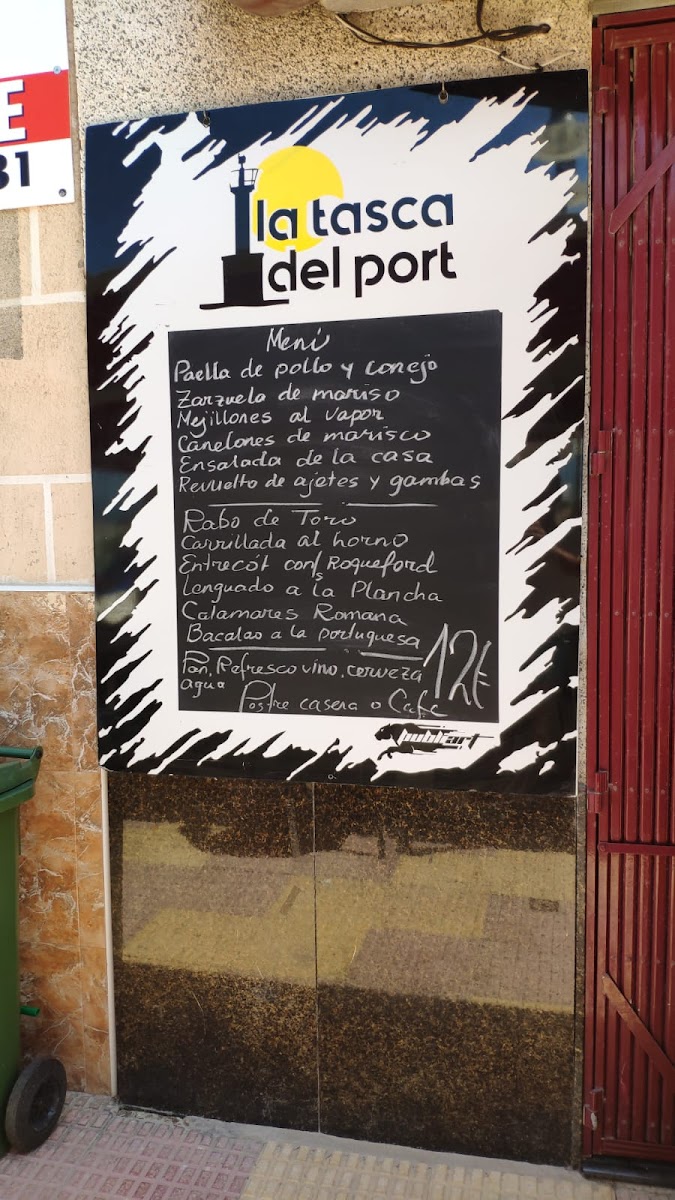 E
31
la tasca
del port
Menú
Paella de pollo y conejo
Zarzuela de mariso
Mejillones al vapor
Canelones de marisco
Ensalada de la casa
Revuelto de ajetes y gambas
Rabo de Toro
Carrillada al horno
Entrecót con/s Roqueford
Lenguado a la Plancha
Calamares Romana
Bacalao a la portuguesa
Pan, Refresco vino, cerveza
agua
12€
Postre casera o Café
publiart